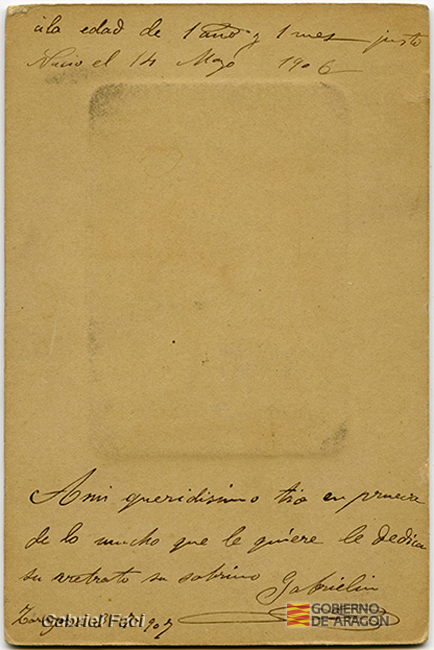 a la edad de 1 año y 1 mes justo
Nacio el 14 Mayo 1906
A mi queridisimo tio en prueva
de lo mucho que le quiere le dedica
su rretrato su sobrino
Gabrielin
Gabriel Faci
GOBIERNO
DE ARAGON